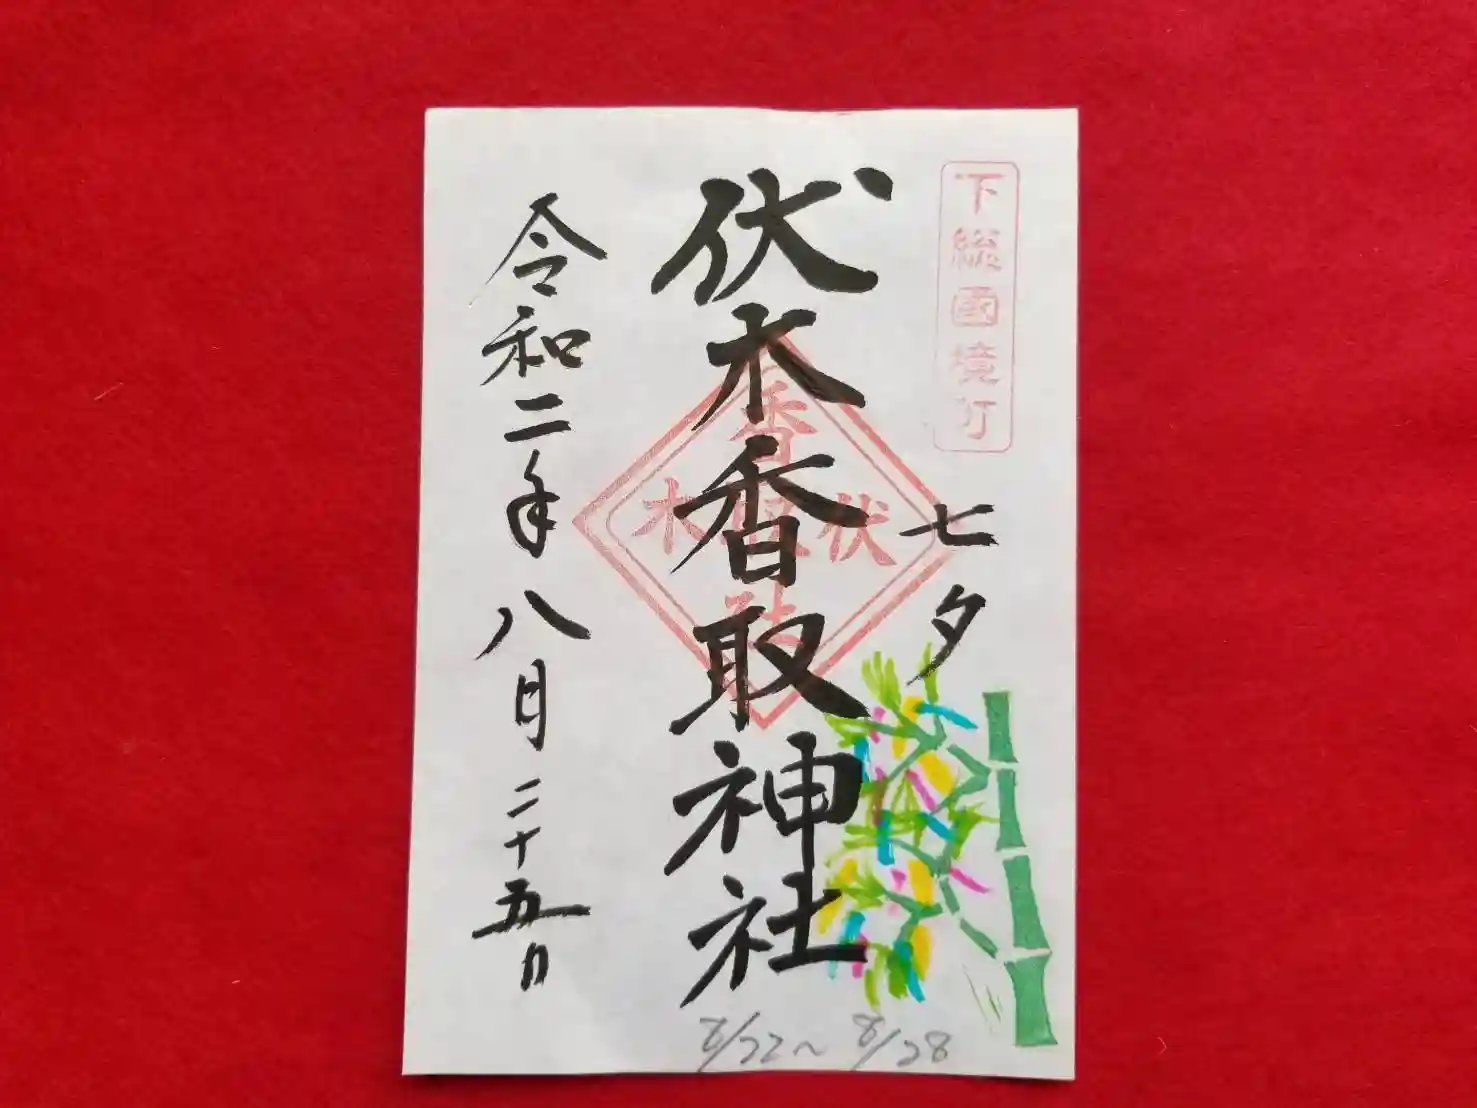 下総國境町
七夕
伏木香取神社
香
木取伏
社
令和二年八月二十五日
8/22〜8/28